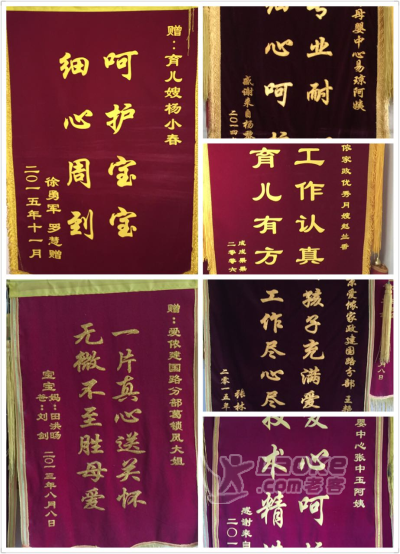 赠：育儿嫂杨小春
呵护宝宝
细心周到
徐勇军 罗慧赠
二〇一五年十一月
母婴中心易琼阿姨
专业耐
细心呵护
感谢来自杨
二〇一四
侬家政优秀月嫂赵兰香
工作认真
育儿有方
二零零六
赠：爱侬建国路分部葛锁凤大姐
一片真心送关怀
无微不至胜母爱
宝宝妈：田洪旸
爸：刘剑
二〇一三年八月八日
爱侬家政建国路分部
孩子充满爱
工作尽心尽
二〇一五年
婴中心张中玉阿姨
心呵护
技术精
感谢来自
二〇一